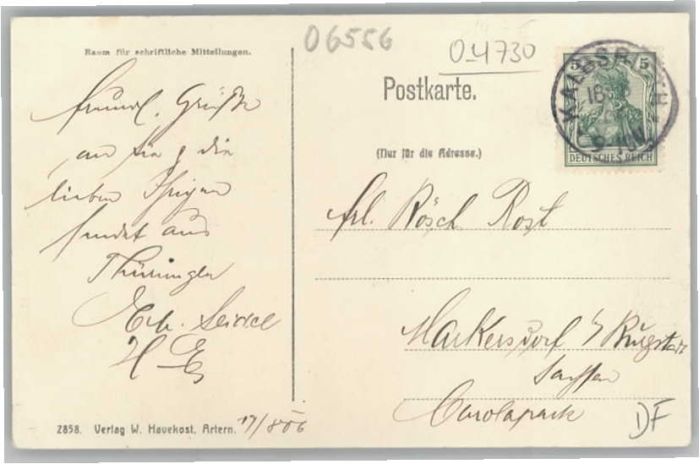 06556
04730
Raum für schriftliche Mitteilungen.
Postkarte.
(Nur für die Adresse.)
5
DEUTSCHES REICH
freundl. Grüße
an Sie & die
lieben Ihrigen
sendet aus
Thüringen
Seidel
Frl. Rösch Rost
Markersdorf b/ Burgstädt
Sachsen
Carolapark
2858. Verlag W. Havekost, Artern.
17/8 06
DF